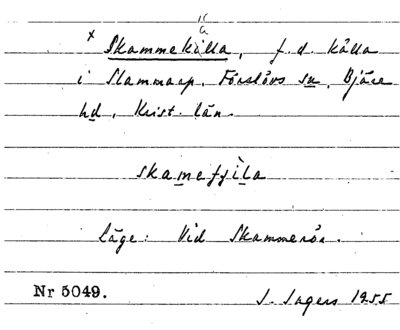 x Skammekälla, f.d. källa
i Slammarp, Förslövs sn, Bjäre
hd, Krist. län.
skamefjìla
Läge: Vid Skammerör.
Nr 5049.
J. Sagers 1955